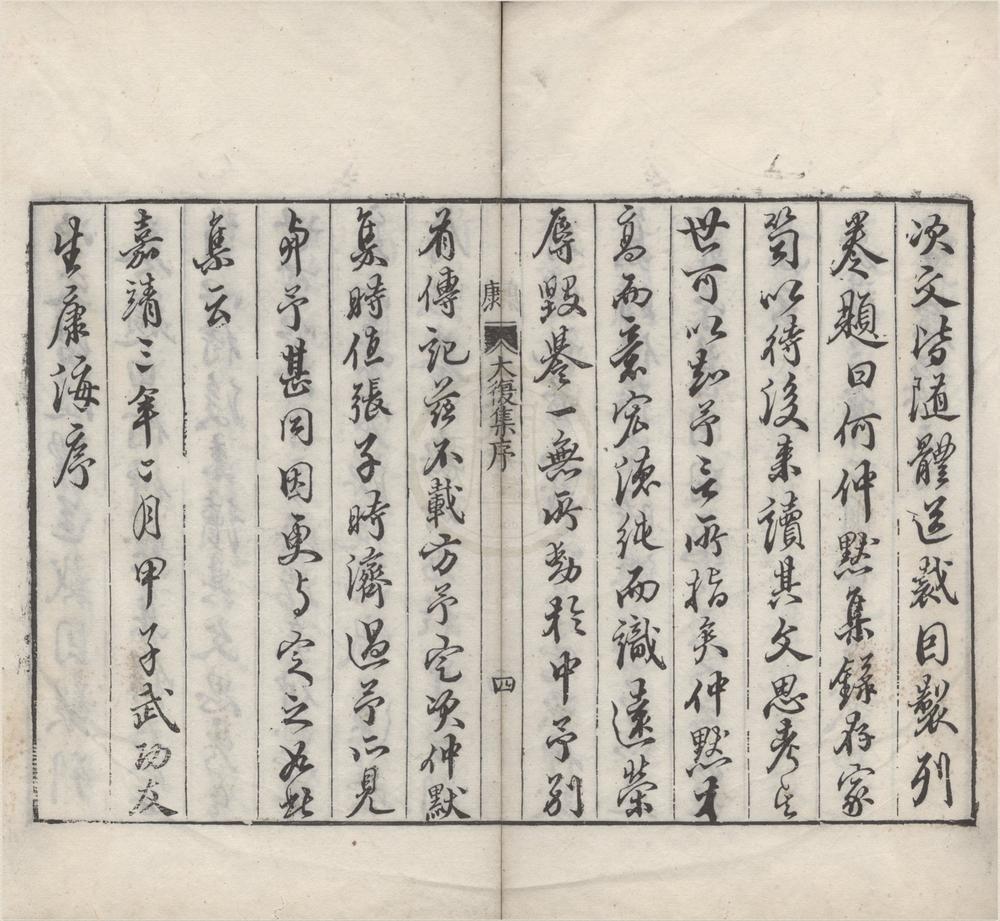 次文皆隨體選裁因製列
卷題曰何仲默集錄存家
笥以待後來讀其文思考其
世可以知予言所指矣仲默才
高而意宏德純而識遠榮
辱毀譽一無所動於中予別
康
大復集序
四
有傳記茲不載方予定次仲默
集時值張子時濟過予所見
命予甚同因更与定之如此
集云
嘉靖三年七月甲子武功友
生康海序